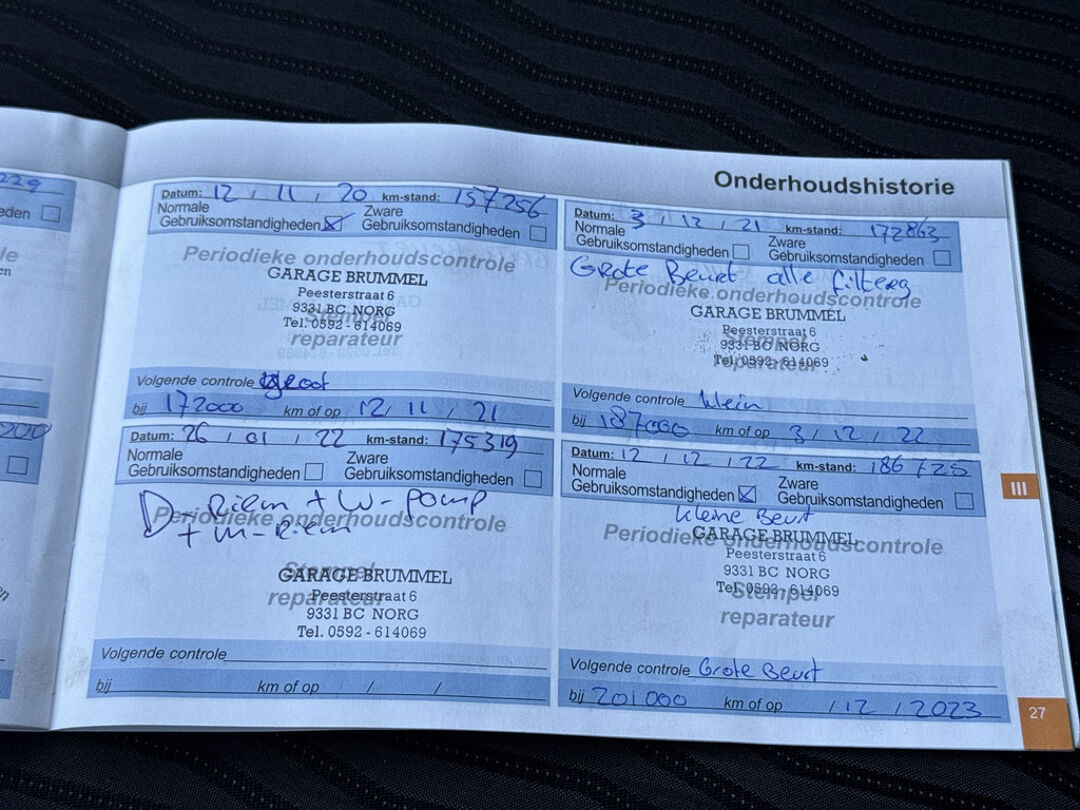 Onderhoudshistorie
229
eden
200
Datum: 12 / 11 / 20 km-stand: 157256
Normale Gebruiksomstandigheden
Zware Gebruiksomstandigheden
Periodieke onderhoudscontrole
GARAGE BRUMMEL
Peesterstraat 6
9331 BC NORG
Tel. 0592 - 614069
Stempel
reparateur
Volgende controle groot
bij 172000 km of op 12 / 11 / 21
Datum: 3 / 12 / 21 km-stand: 172863
Normale Gebruiksomstandigheden
Zware Gebruiksomstandigheden
Grote Beurt alle filters
Periodieke onderhoudscontrole
GARAGE BRUMMEL
Peesterstraat 6
9331 BC NORG
Tel. 0592 - 614069
Stempel
reparateur
Volgende controle klein
bij 187000 km of op 3 / 12 / 22
Datum: 26 / 01 / 22 km-stand: 175319
Normale Gebruiksomstandigheden
Zware Gebruiksomstandigheden
D-Riem + W-pomp
+ M-Riem
Periodieke onderhoudscontrole
Stempel
GARAGE BRUMMEL
reparateur
Peesterstraat 6
9331 BC NORG
Tel. 0592 - 614069
Volgende controle
bij km of op / /
Datum: 12 / 12 / 22 km-stand: 186725
Normale Gebruiksomstandigheden
Zware Gebruiksomstandigheden
kleine Beurt
Periodieke onderhoudscontrole
GARAGE BRUMMEL
Peesterstraat 6
9331 BC NORG
Tel. 0592 - 614069
Stempel
reparateur
Volgende controle Grote Beurt
bij 201000 km of op / 12 / 2023
III
27